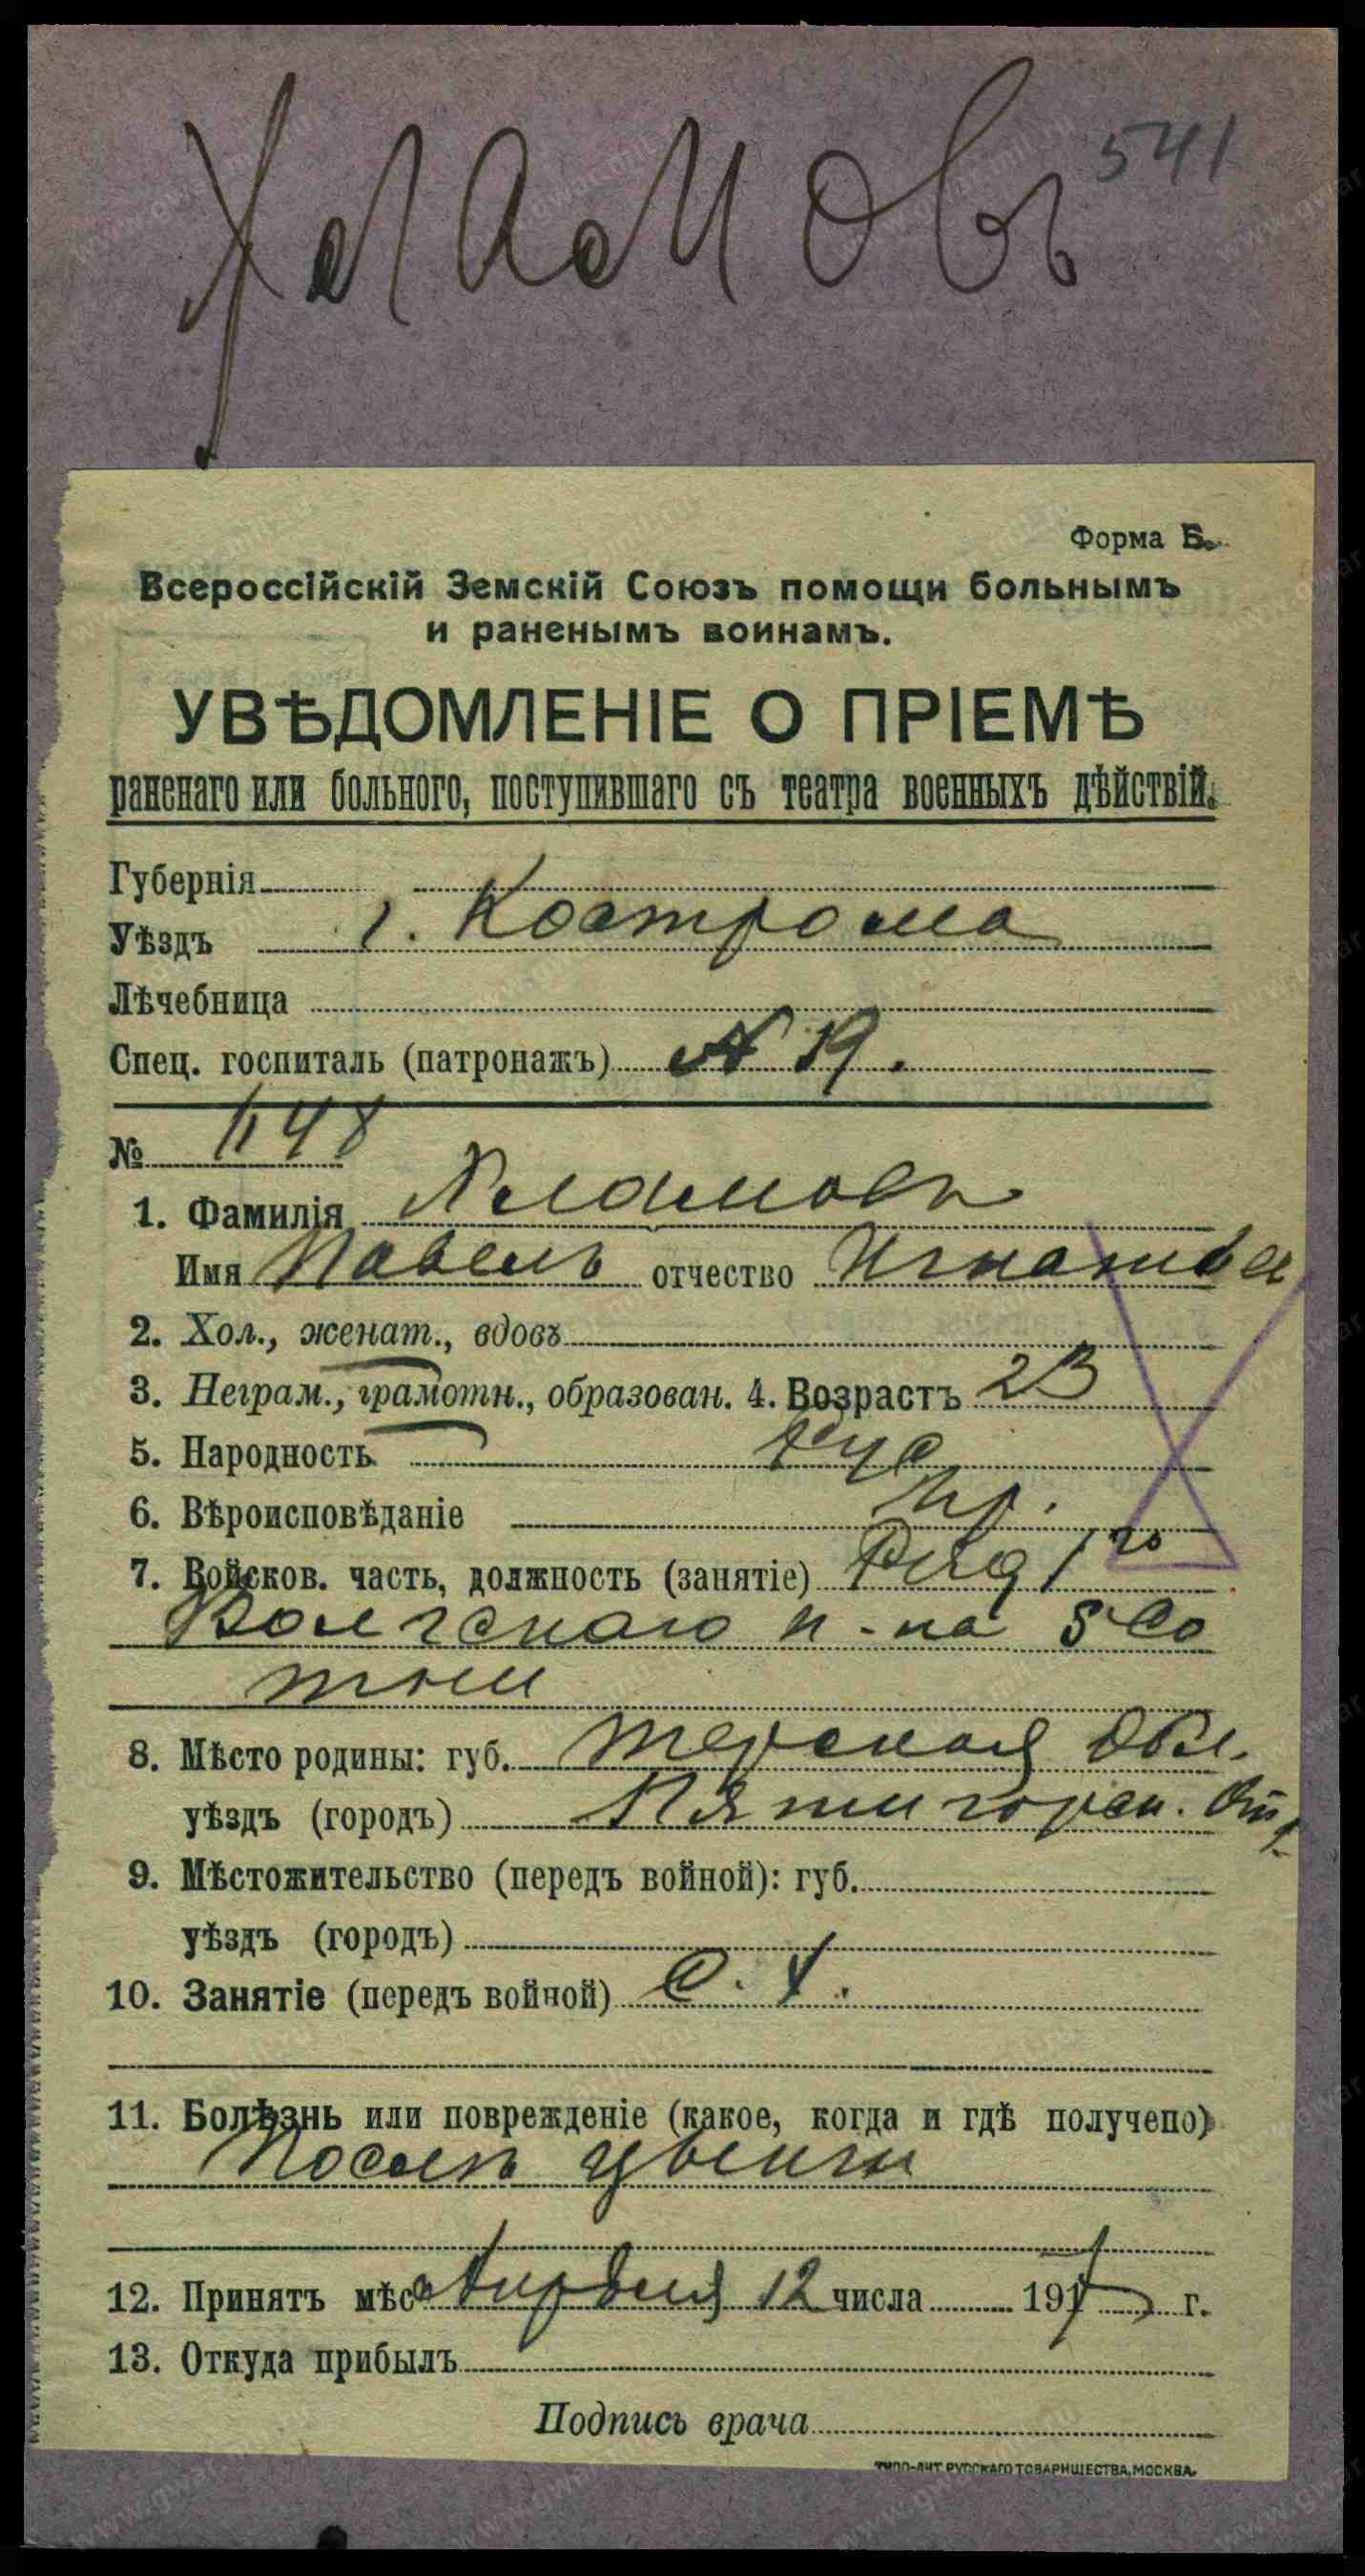 541
Форма Б.
Всероссійскій Земскій Союзъ помощи больнымъ
и раненымъ воинамъ.
УВѢДОМЛЕНІЕ О ПРІЕМѢ
раненаго или больного, поступившаго съ театра военныхъ дѣйствій.
Губернія
Уѣздъ г. Кострома
Лѣчебница
Спец. госпиталь (патронажъ) № 19.
№ 1148
1. Фамилія
Имя Павелъ отчество Игнатьев
2. Хол., женат., вдовъ
3. Неграм., грамотн., образован. 4. Возрастъ 23
5. Народность рус
6. Вѣроисповѣданіе пр.
7. Войсков. часть, должность (занятіе) Ряд 1го
Волгскаго п-ка 5 Со
тни
8. Мѣсто родины: губ. Терская Обл.
уѣздъ (городъ) Пятигорск. Отд.
9. Мѣстожительство (передъ войной): губ.
уѣздъ (городъ)
10. Занятіе (передъ войной) С. Х.
11. Болѣзнь или поврежденіе (какое, когда и гдѣ получено)
Послѣ цынги
12. Принятъ мѣс. Апрѣля 12 числа 1917 г.
13. Откуда прибылъ
Подпись врача
ТИПО-ЛИТ. РУССКАГО ТОВАРИЩЕСТВА, МОСКВА.
www.gwar.mil.ru